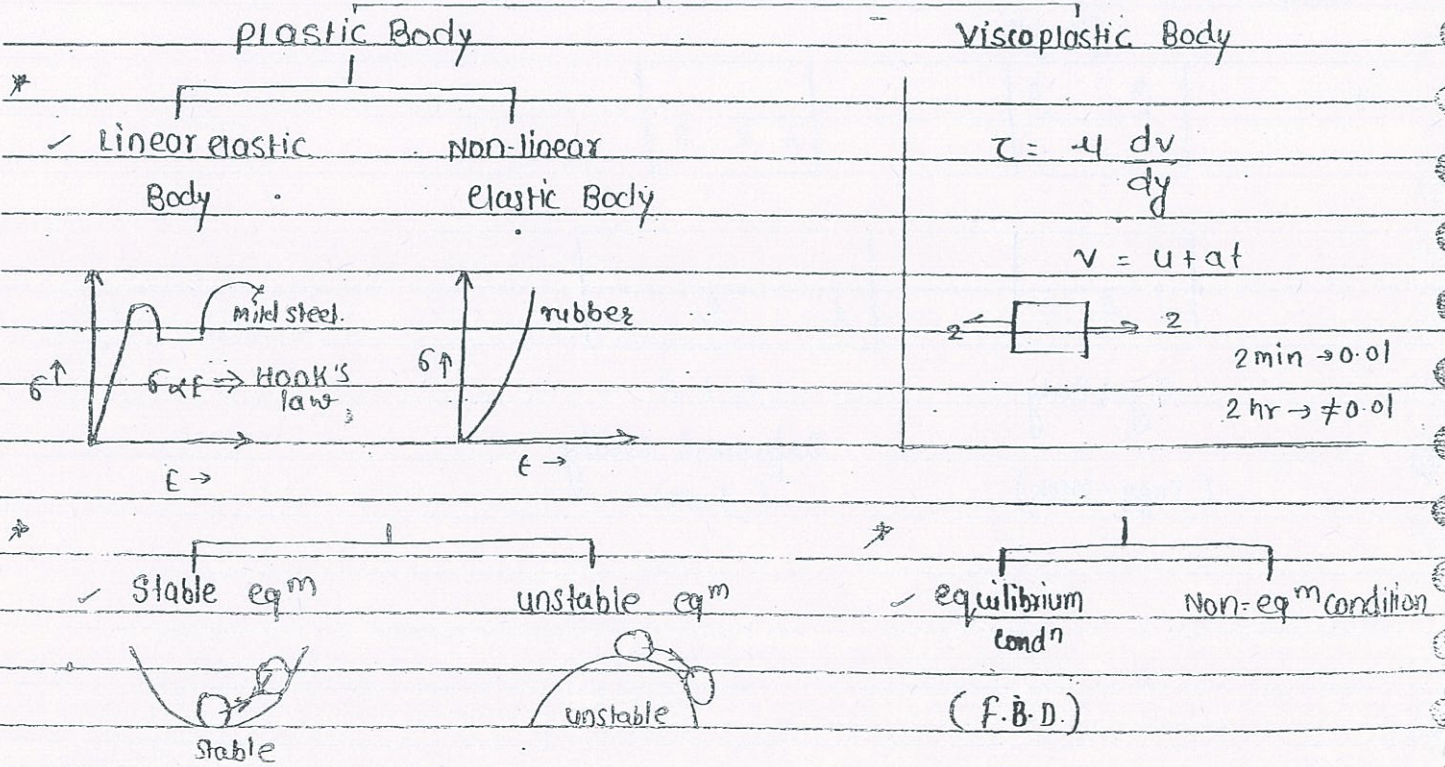 plastic Body
Viscoplastic Body
*
✓ Linear elastic
Body
Non-linear
elastic Body
τ = μ dv
dy
v = u + at
Mild steel.
σ↑
σ∝ε ⇒ HOOK'S
law
ε →
rubber
σ↑
ε →
2 ← → 2
2 min → 0.01
2 hr → ≠ 0.01
*
✓ Stable eqᵐ
unstable eqᵐ
stable
unstable
*
✓ equilibrium
condⁿ
Non-eqᵐ condition
(F.B.D.)